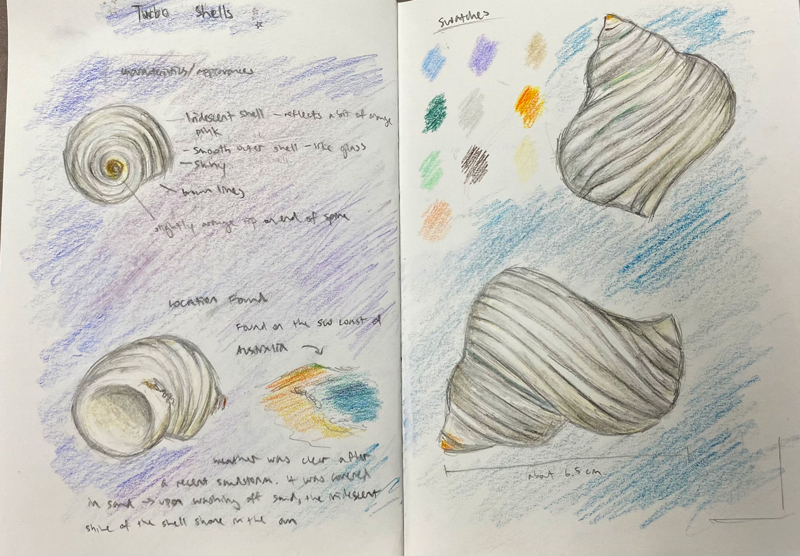 Turbo Shells
characteristics/appearances
Iridescent shell - reflects a bit of orange
pink
- smooth outer shell - like glass
- shiny
brown lines
slightly orange tip on end of spine
Location Found
Found on the SW coast of
Australia
weather was clear after
a recent sandstorm. it was covered
in sand → upon washing off sand, the iridescent
shine of the shell shone in the sun
Swatches
about 6.5 cm